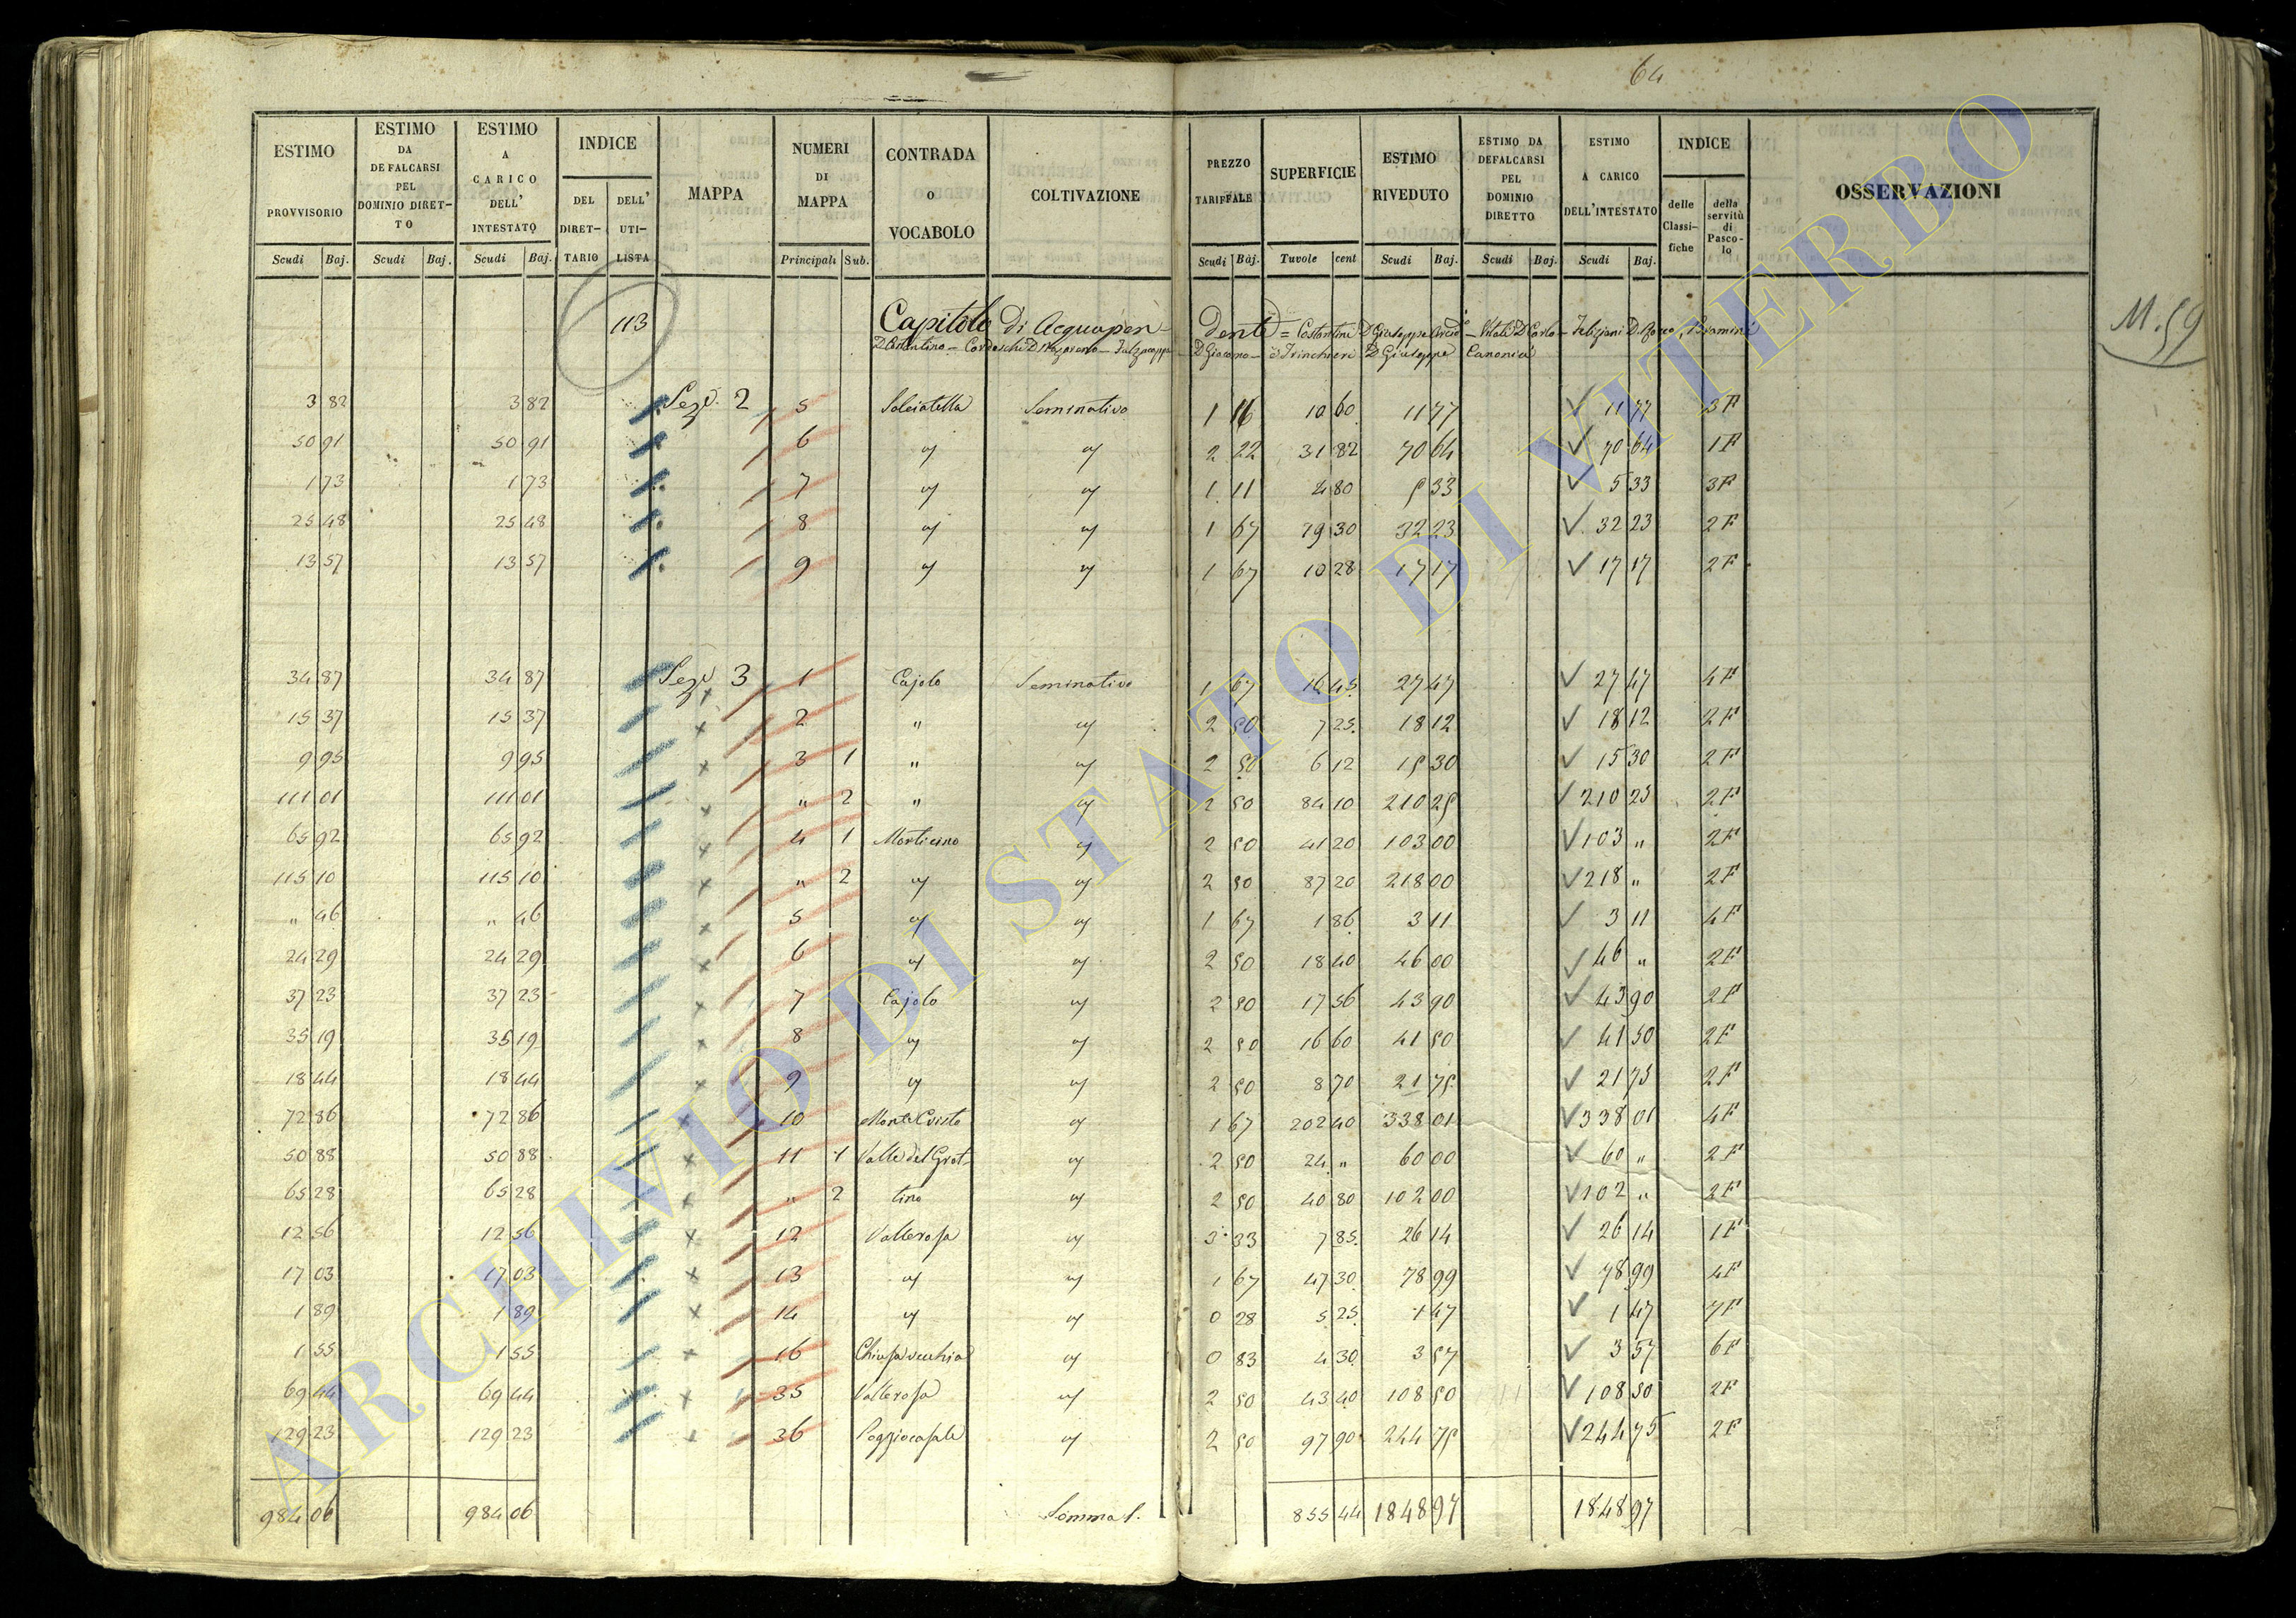 64
ESTIMO PROVVISORIO | ESTIMO DA DEFALCARSI PEL DOMINIO DIRETTO | ESTIMO A CARICO DELL' INTESTATO | INDICE DEL DIRETTARIO | DELL' UTILISTA | MAPPA | NUMERI DI MAPPA | CONTRADA O VOCABOLO | COLTIVAZIONE | PREZZO TARIFFALE | SUPERFICIE | ESTIMO RIVEDUTO | ESTIMO DA DEFALCARSI PEL DOMINIO DIRETTO | ESTIMO A CARICO DELL'INTESTATO | INDICE delle Classifiche | della servitù di Pascolo | OSSERVAZIONI
Scudi | Baj. | Scudi | Baj. | Scudi | Baj. | Principali | Sub. | Scudi | Baj. | Tavole | cent | Scudi | Baj. | Scudi | Baj. | Scudi | Baj.
113 Capitolo di Acquapendente = Costantini D Giuseppe Vitali D Carlo Feliziani D. Rocco,
D Costantino D Nazareno D Giacomo Trinchieri D Giuseppe Canonici
M. 59
3 82 | 3 82 | Sez. 2 | 5 | Solciatella | Seminativo | 1 16 | 10 60 | 11 77 | 11 77 | 3 F
50 91 | 50 91 | 6 | " | " | 2 22 | 31 82 | 70 64 | 70 64 | 1 F
1 73 | 1 73 | 7 | " | " | 1 11 | 4 80 | 5 33 | 5 33 | 3 F
25 48 | 25 48 | 8 | " | " | 1 67 | 19 30 | 32 23 | 32 23 | 2 F
13 57 | 13 57 | 9 | " | " | 1 67 | 10 28 | 17 17 | 17 17 | 2 F
34 87 | 34 87 | Sez. 3 | 1 | Cajolo | Seminativo | 1 67 | 16 45 | 27 47 | 27 47 | 4 F
15 37 | 15 37 | 2 | " | " | 2 50 | 7 25 | 18 12 | 18 12 | 2 F
9 95 | 9 95 | 3 | 1 | " | " | 2 50 | 6 12 | 15 30 | 15 30 | 2 F
111 01 | 111 01 | " | 2 | " | " | 2 50 | 84 10 | 210 25 | 210 25 | 2 F
65 92 | 65 92 | 4 | 1 | Monticino | " | 2 50 | 41 20 | 103 00 | 103 " | 2 F
115 10 | 115 10 | " | 2 | " | " | 2 50 | 87 20 | 218 00 | 218 " | 2 F
" 46 | " 46 | 5 | " | " | 1 67 | 1 86 | 3 11 | 3 11 | 4 F
24 29 | 24 29 | 6 | " | " | 2 50 | 18 40 | 46 00 | 46 " | 2 F
37 23 | 37 23 | 7 | Cajolo | " | 2 50 | 17 56 | 43 90 | 43 90 | 2 F
35 19 | 35 19 | 8 | " | " | 2 50 | 16 60 | 41 50 | 41 50 | 2 F
18 44 | 18 44 | 9 | " | " | 2 50 | 8 70 | 21 75 | 21 75 | 2 F
72 86 | 72 86 | 10 | Monte Cristo | " | 1 67 | 202 40 | 338 01 | 338 01 | 4 F
50 88 | 50 88 | 11 | 1 | Valle del Grot- | " | 2 50 | 24 " | 60 00 | 60 " | 2 F
65 28 | 65 28 | " | 2 | tino | " | 2 50 | 40 80 | 102 00 | 102 " | 2 F
12 56 | 12 56 | 12 | Vallerosa | " | 3 33 | 7 85 | 26 14 | 26 14 | 1 F
17 03 | 17 03 | 13 | " | " | 1 67 | 47 30 | 78 99 | 78 99 | 4 F
1 89 | 1 89 | 14 | " | " | 0 28 | 5 25 | 1 47 | 1 47 | 7 F
1 55 | 1 55 | 16 | Chiusa vecchia | " | 0 83 | 4 30 | 3 57 | 3 57 | 6 F
69 44 | 69 44 | 35 | Vallerosa | " | 2 50 | 43 40 | 108 50 | 108 50 | 2 F
129 23 | 129 23 | 36 | Poggiocasale | " | 2 50 | 97 90 | 244 75 | 244 75 | 2 F
984 06 | 984 06 | Somma S. | 855 44 | 1848 97 | 1848 97
ARCHIVIO DI STATO DI VITERBO